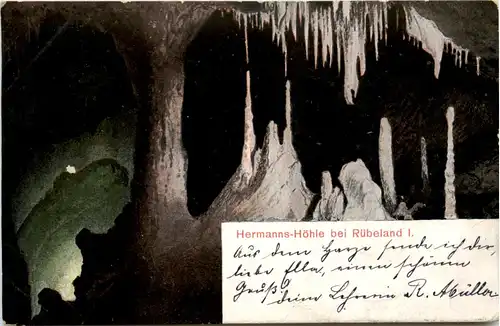 Hermanns-Höhle bei Rübeland I.
Aus dem Harze sende ich dir,
liebe Ella, einen schönen
Gruß! deine Lehrerin R. Müller